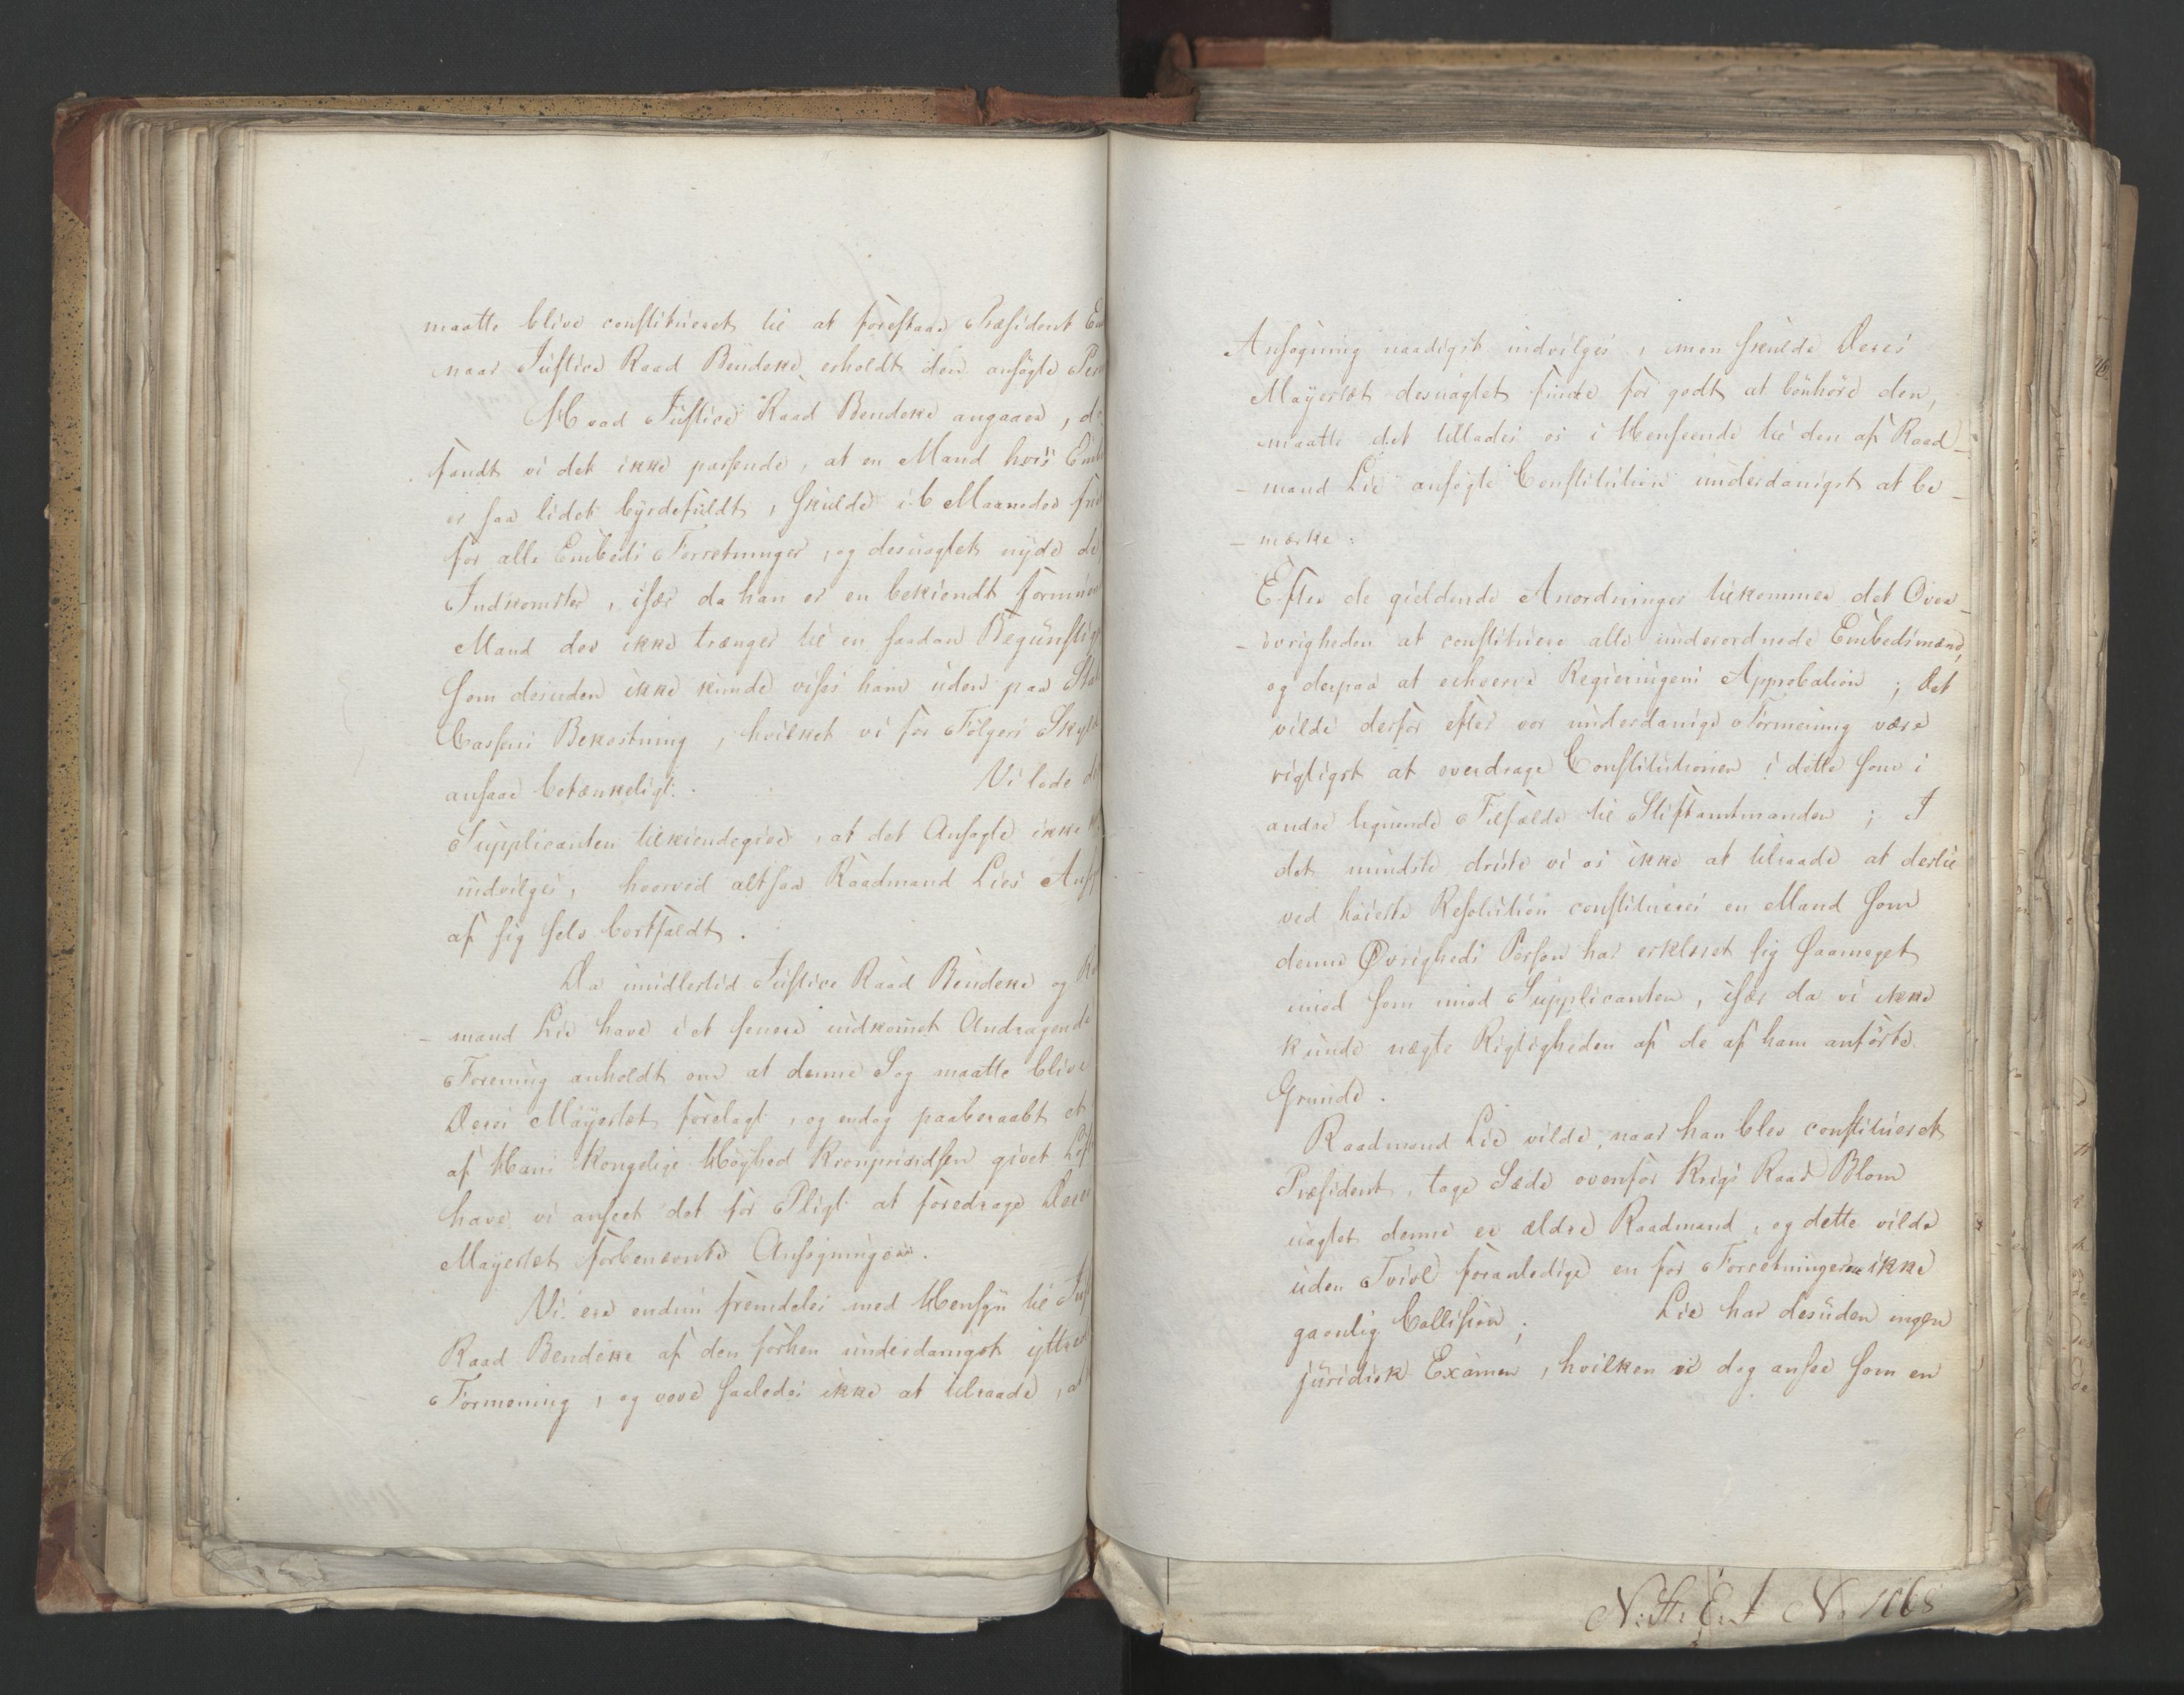 maatte blive constitueret til at forestaae Præsident
naar Justice Raad Bendeke erholdt den ansøgte
Hvad Justice Raad Bendeke angaaer,
fandt vi det ikke passende, at en Mand hvis
er saa lidet byrdefuldt, skulde i 6 Maaneder
for alle Embeds Forretninger, og desuagtet nyde
Indkomster, især da han er en bekiendt
Mand der ikke trænger til en saadan
som desuden ikke kunde vises ham uden paa
Cassens Bekostning, hvilket vi for Følgens
ansaae betænkeligt. Vi lode
Supplicanten tilkiendegive, at det Ansøgte ikke
indvilges, hvorved altsaa Raadmand Lies
af sig selv bortfaldt.
Da imidlertid Justice Raad Bendeke og
- mand Lie have i et senere indkomet Andragende
Forening anholdt om at denne Sag maatte blive
Deres Mayestæt forelagt, og endog paaberaabt et
af Hans Kongelige Høyhed Kronprindsen givet
have vi anseet det for Pligt at foredrage Deres
Mayestæt forbenævnte Ansøgninger.
Vi ere endnu fremdeles med Hensyn til
Raad Bendeke af den forhen underdanigst
Formening, og vove saaledes ikke at tilraade,
Ansøgning naadigst indvilges, men skulde Deres
Mayestæt desuagtet finde for godt at bønhøre den,
maatte det tillades os i Henseende til den af Raad-
- mand Lie ansøgte Constitution underdanigst at be-
- mærke:
Efter de gieldende Anordninger tilkommer det Over-
- øvrigheden at constituere alle underordnede Embedsmænd,
og derpaa at erhverve Regieringens Approbation; Det
vilde derfor efter vor underdanige Formening være
rigtigst at overdrage Constitutionen i dette som i
andre lignende Tilfælde til Stiftamtmanden; I
det mindste driste vi os ikke at tilraade at dertil
ved høieste Resolution constitueres en Mand som
denne Øvrigheds Person har erklæret sig saameget
imod som imod Supplicanten, især da vi ikke
kunde nægte Rigtigheden af de af ham anførte
Grunde.
Raadmand Lie vilde, naar han blev constitueret
Præsident, tage Sæde ovenfor Krigs Raad Blom
uagtet denne er ældre Raadmand, og dette vilde
uden Tvivl foranledige en for Forretningerne ikke
gavnlig Collision; Lie har desuden ingen
juridisk Examen, hvilken vi dog ansee som en
N: St: E: A No 1068